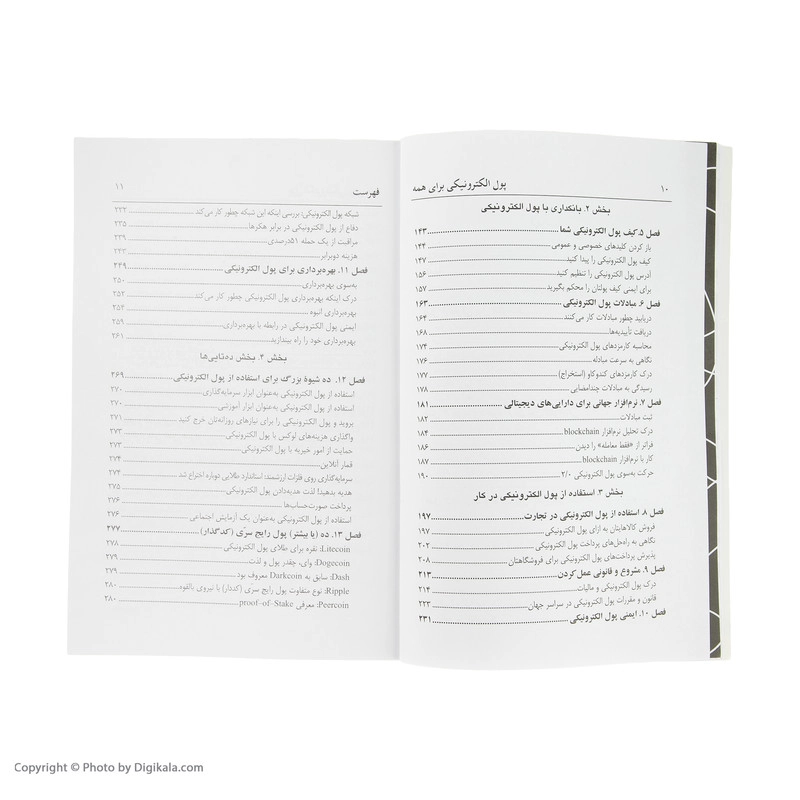 ۱۰ پول الکترونیکی برای همه
بخش ۲. بانکداری با پول الکترونیکی
فصل ۵. کیف پول الکترونیکی شما ۱۴۳
باز کردن کلیدهای خصوصی و عمومی ۱۴۴
کیف پول الکترونیکی را پیدا کنید ۱۴۷
آدرس پول الکترونیکی را تنظیم کنید ۱۵۶
برای ایمنی کیف پولتان را محکم بگیرید ۱۵۷
فصل ۶. مبادلات پول الکترونیکی ۱۶۳
دریابید چطور مبادلات کار می‌کنند ۱۶۴
دریافت تأییدیه‌ها ۱۶۸
محاسبه کارمزدهای پول الکترونیکی ۱۷۴
نگاهی به سرعت مبادله ۱۷۶
درک کارمزدهای کندوکاو (استخراج) ۱۷۷
رسیدگی به مبادلات چندامضایی ۱۷۸
فصل ۷. نرم‌افزار جهانی برای دارایی‌های دیجیتالی ۱۸۱
ثبت مبادلات ۱۸۲
درک تحلیل نرم‌افزار blockchain ۱۸۴
فراتر از «فقط معامله» را دیدن ۱۸۶
کار با نرم‌افزار blockchain ۱۸۷
حرکت به‌سوی پول الکترونیکی ۲/۰ ۱۹۰
بخش ۳. استفاده از پول الکترونیکی در کار
فصل ۸. استفاده از پول الکترونیکی در تجارت ۱۹۷
فروش کالاهایتان به ازای پول الکترونیکی ۱۹۷
نگاهی به راه‌حل‌های پرداخت پول الکترونیکی ۲۰۲
پذیرش پرداخت‌های پول الکترونیکی برای فروشگاهتان ۲۰۸
فصل ۹. مشروع و قانونی عمل کردن ۲۱۳
درک پول الکترونیکی و مالیات ۲۱۴
قانون و مقررات پول الکترونیکی در سراسر جهان ۲۲۳
فصل ۱۰. ایمنی پول الکترونیکی ۲۳۱
فهرست ۱۱
شبکه پول الکترونیکی: بررسی اینکه این شبکه چطور کار می‌کند ۲۳۲
دفاع از پول الکترونیکی در برابر هکرها ۲۳۵
مراقبت از یک حمله ۵۱درصدی ۲۳۹
هزینه دوبرابر ۲۴۳
فصل ۱۱. بهره‌برداری برای پول الکترونیکی ۲۴۹
به‌سوی بهره‌برداری ۲۵۰
درک اینکه بهره‌برداری پول الکترونیکی چطور کار می‌کند ۲۵۲
بهره‌برداری انبوه ۲۵۳
ایمنی پول الکترونیکی در رابطه با بهره‌برداری ۲۵۹
بهره‌برداری خود را راه بیندازید ۲۶۱
بخش ۴. بخش ده‌تایی‌ها
فصل ۱۲. ده شیوهٔ بزرگ برای استفاده از پول الکترونیکی ۲۶۹
استفاده از پول الکترونیکی به‌عنوان ابزار سرمایه‌گذاری ۲۷۰
استفاده از پول الکترونیکی به‌عنوان ابزار آموزشی ۲۷۰
بروید و پول الکترونیکی را برای نیازهای روزانه‌تان خرج کنید ۲۷۱
واگذاری هزینه‌های لوکس با پول الکترونیکی ۲۷۳
حمایت از امور خیریه با پول الکترونیکی ۲۷۳
قمار آنلاین ۲۷۴
سرمایه‌گذاری روی فلزات ارزشمند: استاندارد طلایی دوباره اختراع شد ۲۷۴
هدیه بدهید! لذت هدیه‌دادن پول الکترونیکی ۲۷۵
پرداخت صورت‌حساب‌ها ۲۷۶
استفاده از پول الکترونیکی به‌عنوان یک آزمایش اجتماعی ۲۷۶
فصل ۱۳. ده (یا بیشتر) پول رایج سرّی (کدگذار) ۲۷۷
Litecoin: نقره برای طلای پول الکترونیکی ۲۷۸
Dogecoin: وای، چقدر پول و لذت ۲۷۹
Dash: سابق به Darkcoin معروف بود ۲۷۹
Ripple: نوع متفاوت پول رایج سری (کددار) با نیروی بالقوه ۲۸۰
Peercoin: معرفی proof-of-Stake ۲۸۰
Copyright © Photo by Digikala.com